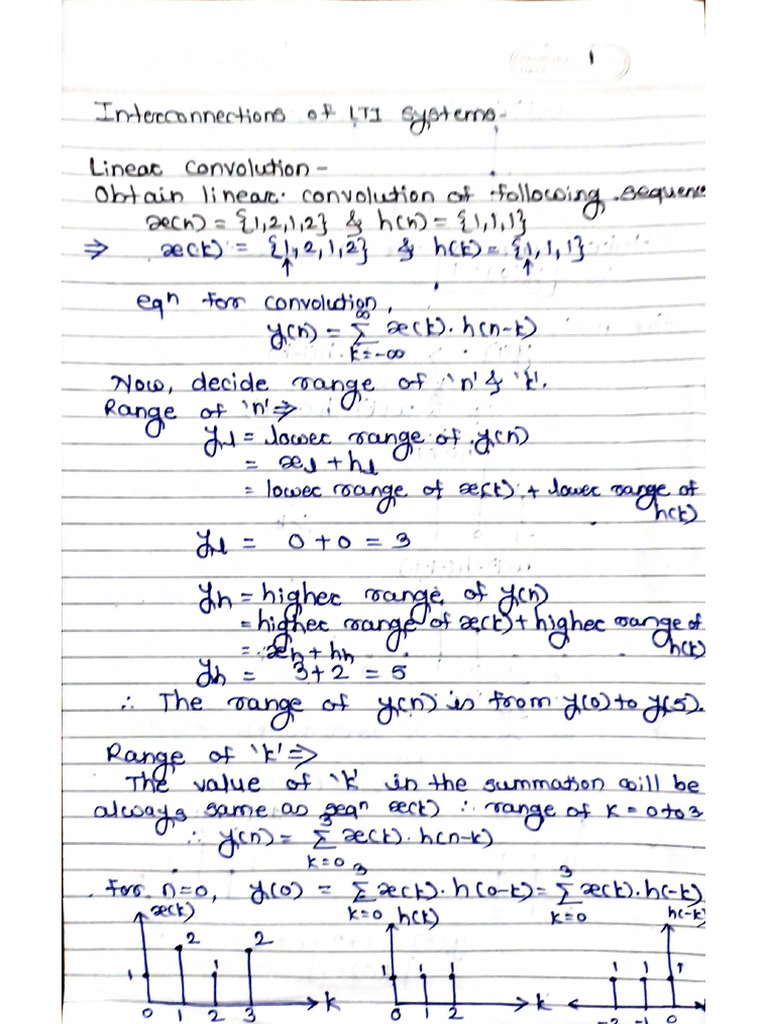 1
Interconnections of LTI Systems-
Linear Convolution -
Obtain linear convolution of following sequence
x(n) = {1,2,1,2} & h(n) = {1,1,1}
⇒ x(k) = {1,2,1,2} & h(k) = {1,1,1}
↑ ↑
eqn for convolution,
y(n) = ∞ Σ k=-∞ x(k). h(n-k)
Now, decide range of 'n' & 'k'.
Range of 'n' ⇒
yl = lower range of y(n)
= xl + hl
= lower range of x(k) + lower range of
h(k)
yl = 0+0 = 3
yh = higher range of y(n)
= higher range of x(k) + higher range of
h(k)
= xh + hh
yh = 3+2 = 5
∴ The range of y(n) is from y(0) to y(5).
Range of 'k' ⇒
The value of 'k' in the summation will be
always same as seqn x(k) ∴ range of k = 0 to 3
∴ y(n) = 3 Σ k=0 x(k). h(n-k)
For n=0, y(0) = 3 Σ k=0 x(k). h(0-k) = 3 Σ k=0 x(k). h(-k)
x(k) h(k) h(-k)
2 2
1 1 1 1 1 1 1 1
0 1 2 3 k 0 1 2 k -2 -1 0